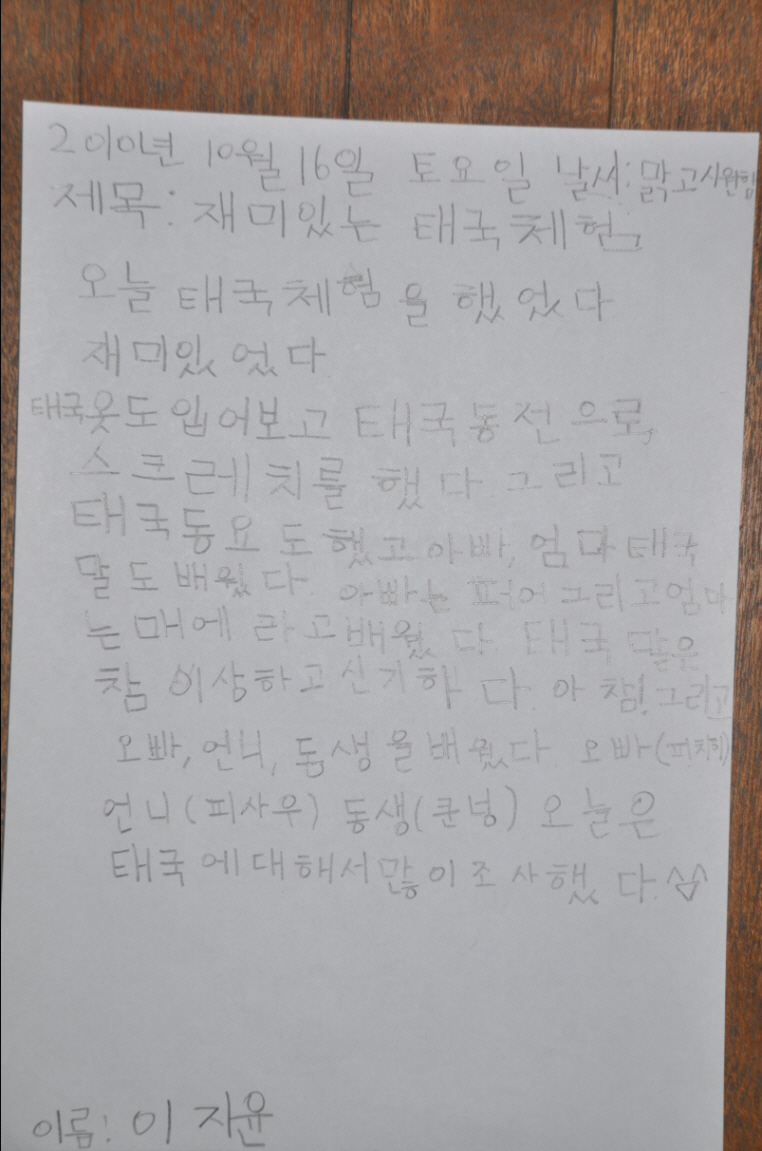 2010년 10월 16일 토요일 날씨: 맑고시원함
제목: 재미있는 태국체험
오늘 태국체험을 했었다
재미있었다
태국옷도 입어보고 태국동전으로,
스크레치를 했다. 그리고
태국동요도 했고 아빠, 엄마 태국
말도 배웠다. 아빠는 퍼어 그리고엄마
는 매에 라고배웠다. 태국 말은
참 이상하고신기하다. 아 참! 그리고
오빠, 언니, 동생을 배웠다 오빠
언니(피사우) 동생(쿤넝) 오늘은
태국에대해서많이조사했다. ^^
이름: 이 자윤